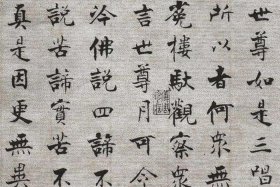 世尊如是三唱
所以者何眾無
㝹樓馱觀察眾
言世尊月可令
冷佛說四諦不
說苦諦實苦不
真是因更無異